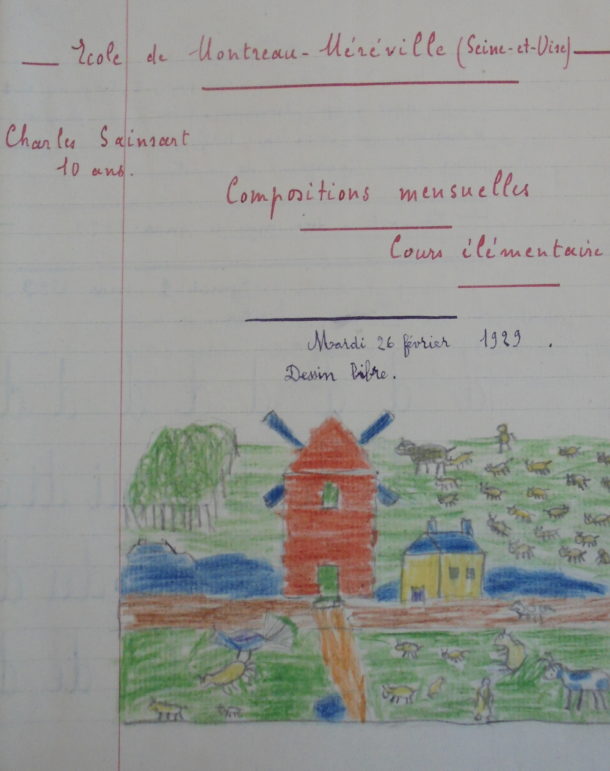 Ecole de Montreau-Méréville (Seine-et-Oise)
Charles Sainsart
10 ans.
Compositions mensuelles
Cours élémentaire
Mardi 26 février 1929.
Dessin libre.